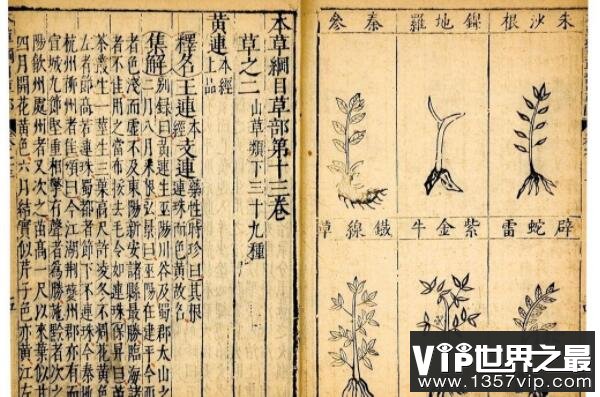 朱沙根
錦地羅
拳參
辟蛇雷
紫金牛
鐵線草
本草綱目草部第十三卷
草之二 山草類下三十九種
黃連 本經上品
釋名 王連 本經 支連 藥性 時珍曰其根連珠而色黃故名
集解 別錄曰黃連生巫陽川谷及蜀郡太山之
二月八月采根弘景曰巫陽在建平今西
者色淺而虛不及東陽新安諸縣最勝臨海諸
者不佳用之當布裹挼去毛令如連珠保昇曰苗
茶叢生一莖生三葉高尺許凌冬不凋花黃色
左者節高若連珠蜀都者節下不連珠今秦地
杭州柳州者佳頌曰今江湖荊夔州郡亦有而
宣城九節堅重相擊有聲者為勝施黔者次之
陽歙州處州者又次之苗高一尺以來葉似甘
四月開花黃色六月結實似芹子色亦黃江左
VIP世界之最
www.1357vip.com